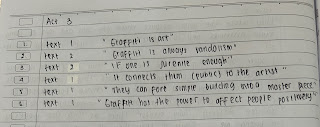 Act 3
1 text 1 "Graffiti is art"
2 text 2 "Graffiti is always vandalism"
3 text 2 "IF one is juvenile enough"
4 text 1 "It connects them (public) to the artist"
5 text 1 "They can fore simple building into a master piece"
6 text 1 "Graffiti has the power to affect people positively"